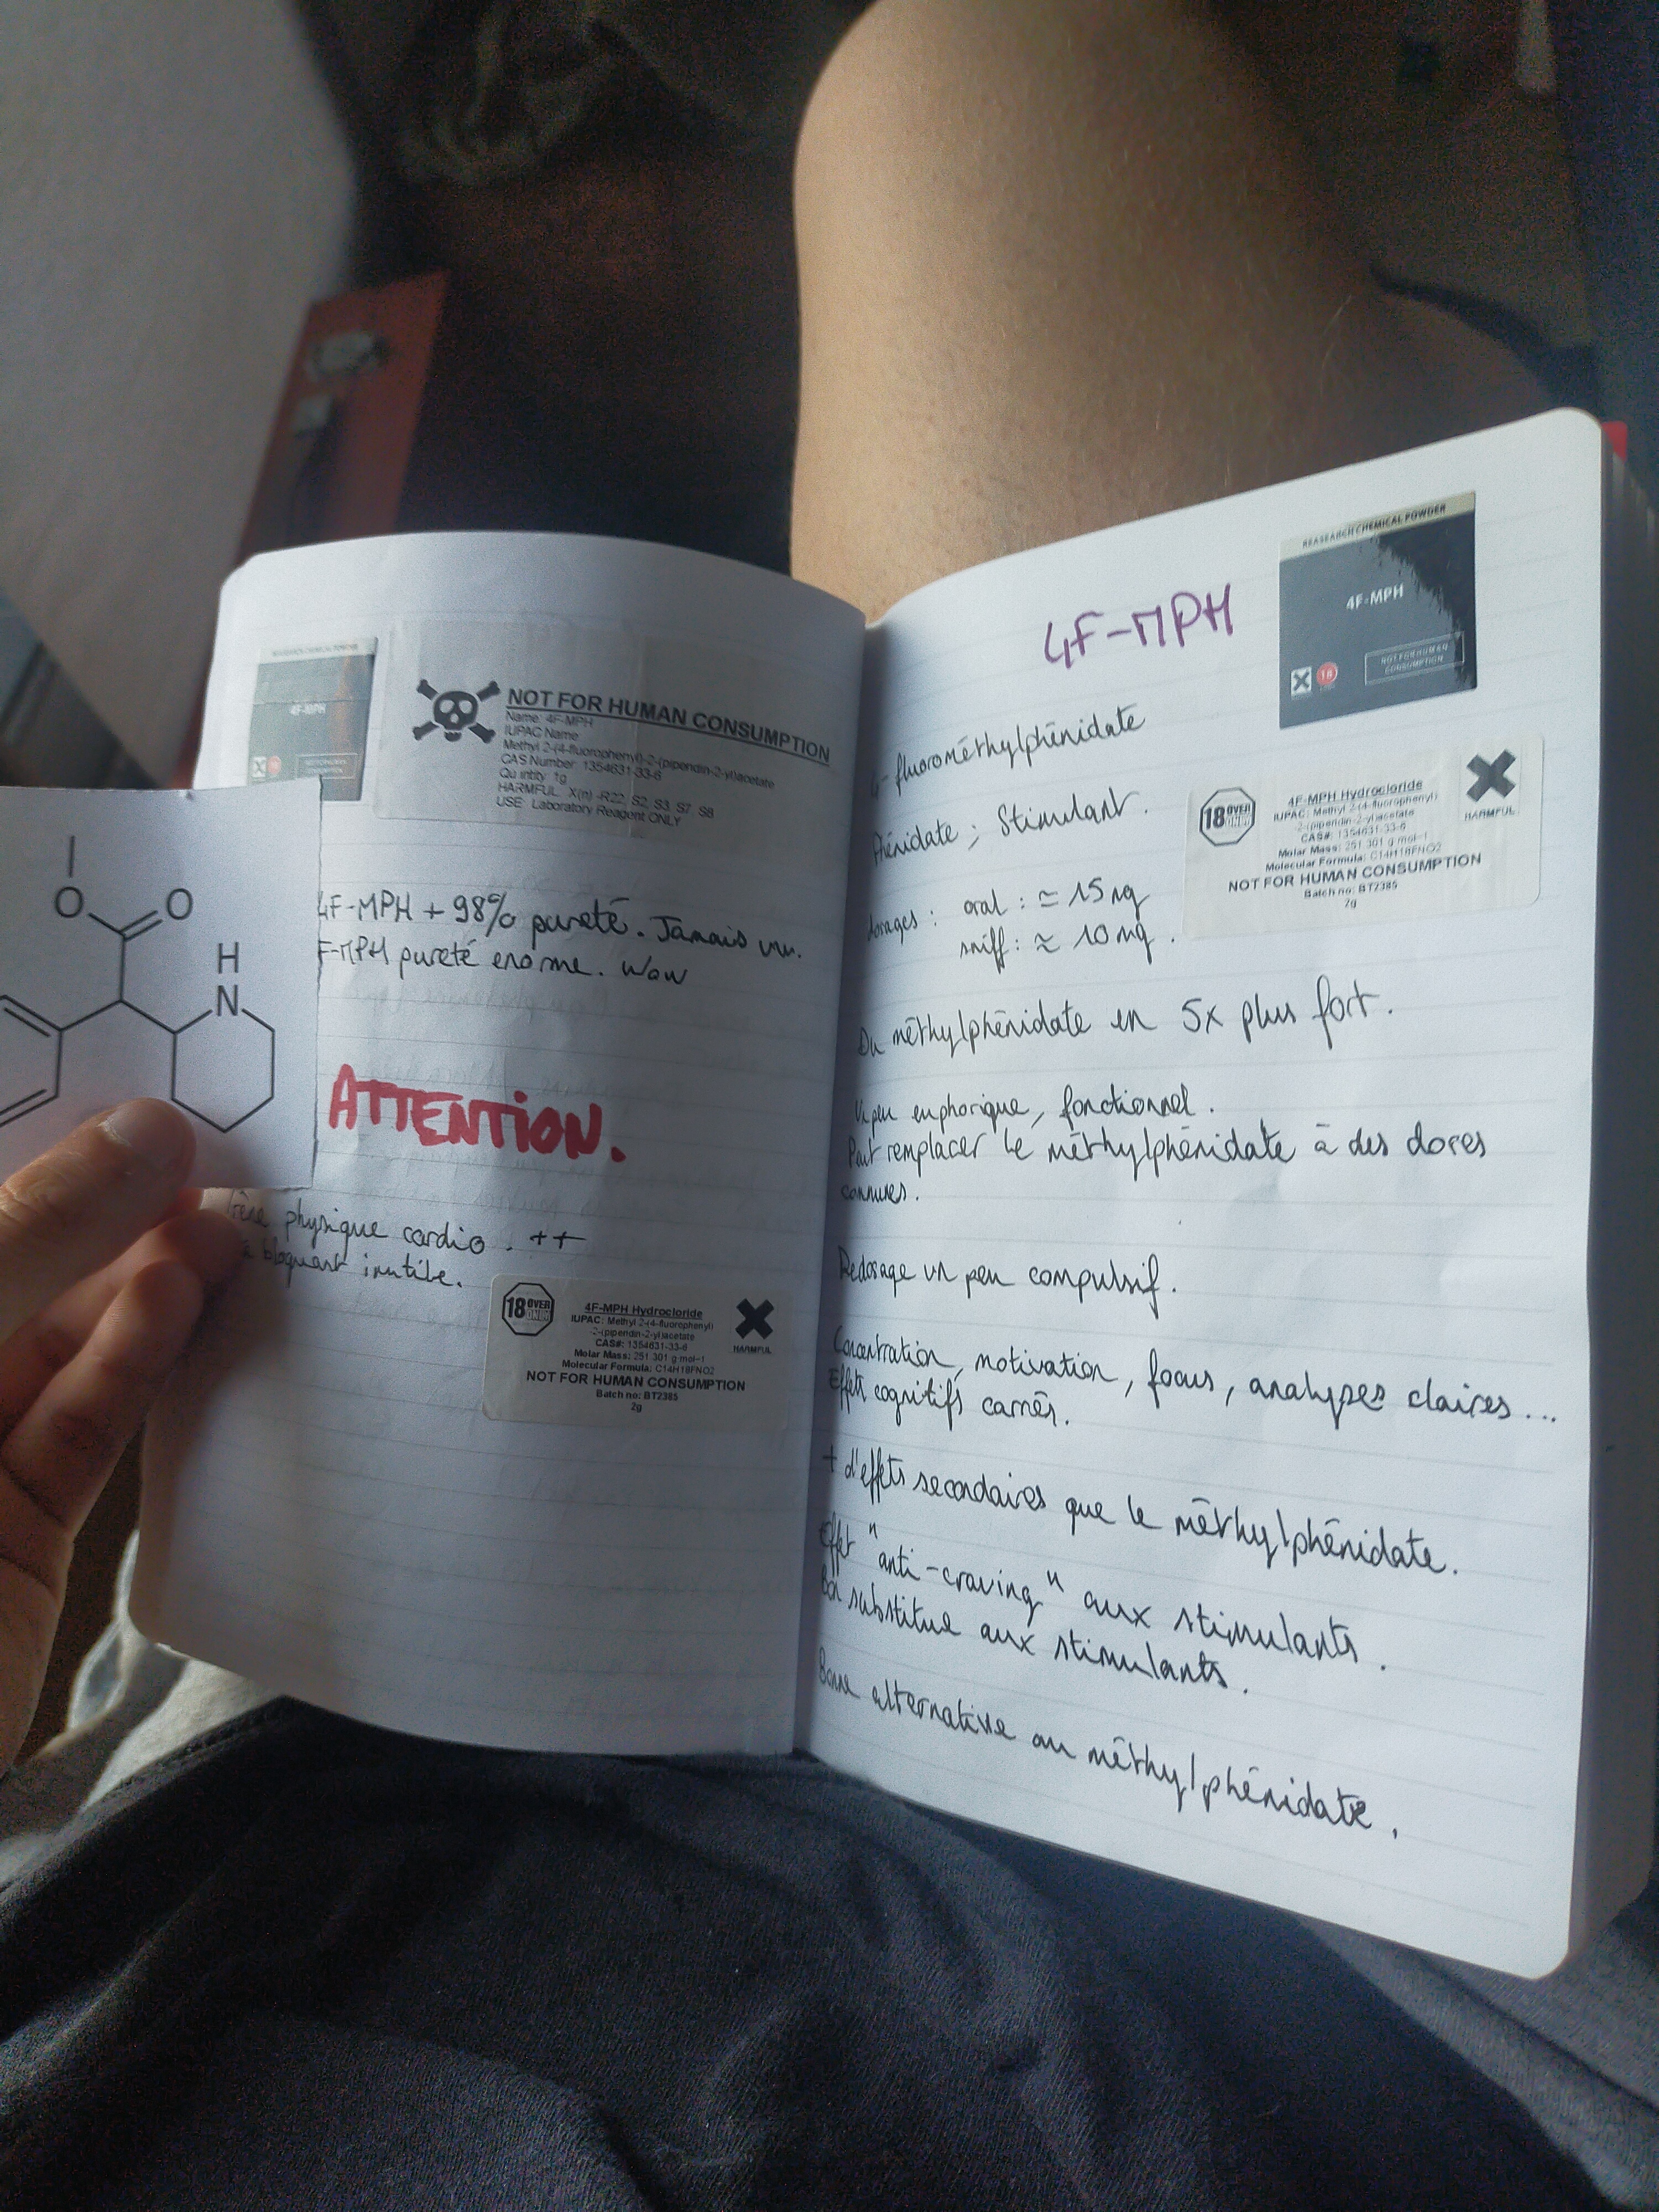 RESEARCH CHEMICAL POWDER
4F-MPH
NOT FOR HUMAN CONSUMPTION
Name: 4F-MPH
IUPAC Name
Methyl 2-(4-fluorophenyl)-2-(piperidin-2-yl)acetate
CAS Number: 1354631-33-6
Qu intity: 1g
HARMFUL: X(n) -R22, S2, S3, S7, S8
USE: Laboratory Reagent ONLY
O
O
H
N
4F-MPH + 98% pureté. Jamais vu.
F-MPH pureté enorme. Wow
ATTENTION.
physique cardio. ++
à bloquant inutile.
18 OVER ONLY
4F-MPH Hydrocloride
IUPAC: Methyl 2-(4-fluorophenyl)
-2-(piperidin-2-yl)acetate
CAS#: 1354631-33-6
Molar Mass: 251.301 g·mol−1
Molecular Formula: C14H18FNO2
NOT FOR HUMAN CONSUMPTION
Batch no: BT2385
2g
HARMFUL
REASEARCH CHEMICAL POWDER
4F-MPH
18
NOT FOR HUMAN
CONSUMPTION
4F-MPH
4-fluorométhylphénidate
Phénidate ; Stimulant.
18 OVER ONLY
4F-MPH Hydrocloride
IUPAC: Methyl 2-(4-fluorophenyl)
-2-(piperidin-2-yl)acetate
CAS#: 1354631-33-6
Molar Mass: 251.301 g·mol−1
Molecular Formula: C14H18FNO2
NOT FOR HUMAN CONSUMPTION
Batch no: BT2385
2g
HARMFUL
dosages : oral : ≃ 15 mg
sniff : ≈ 10 mg.
Du méthylphénidate en 5x plus fort.
Un peu euphorique, fonctionnel.
Peut remplacer le méthylphénidate à des doses
connues.
Redosage un peu compulsif.
Concentration, motivation, focus, analyses claires...
Effets cognitifs carrés.
+ d'effets secondaires que le méthylphénidate.
Effet "anti-craving" aux stimulants.
Bon substitue aux stimulants.
Bonne alternative au méthylphénidate.